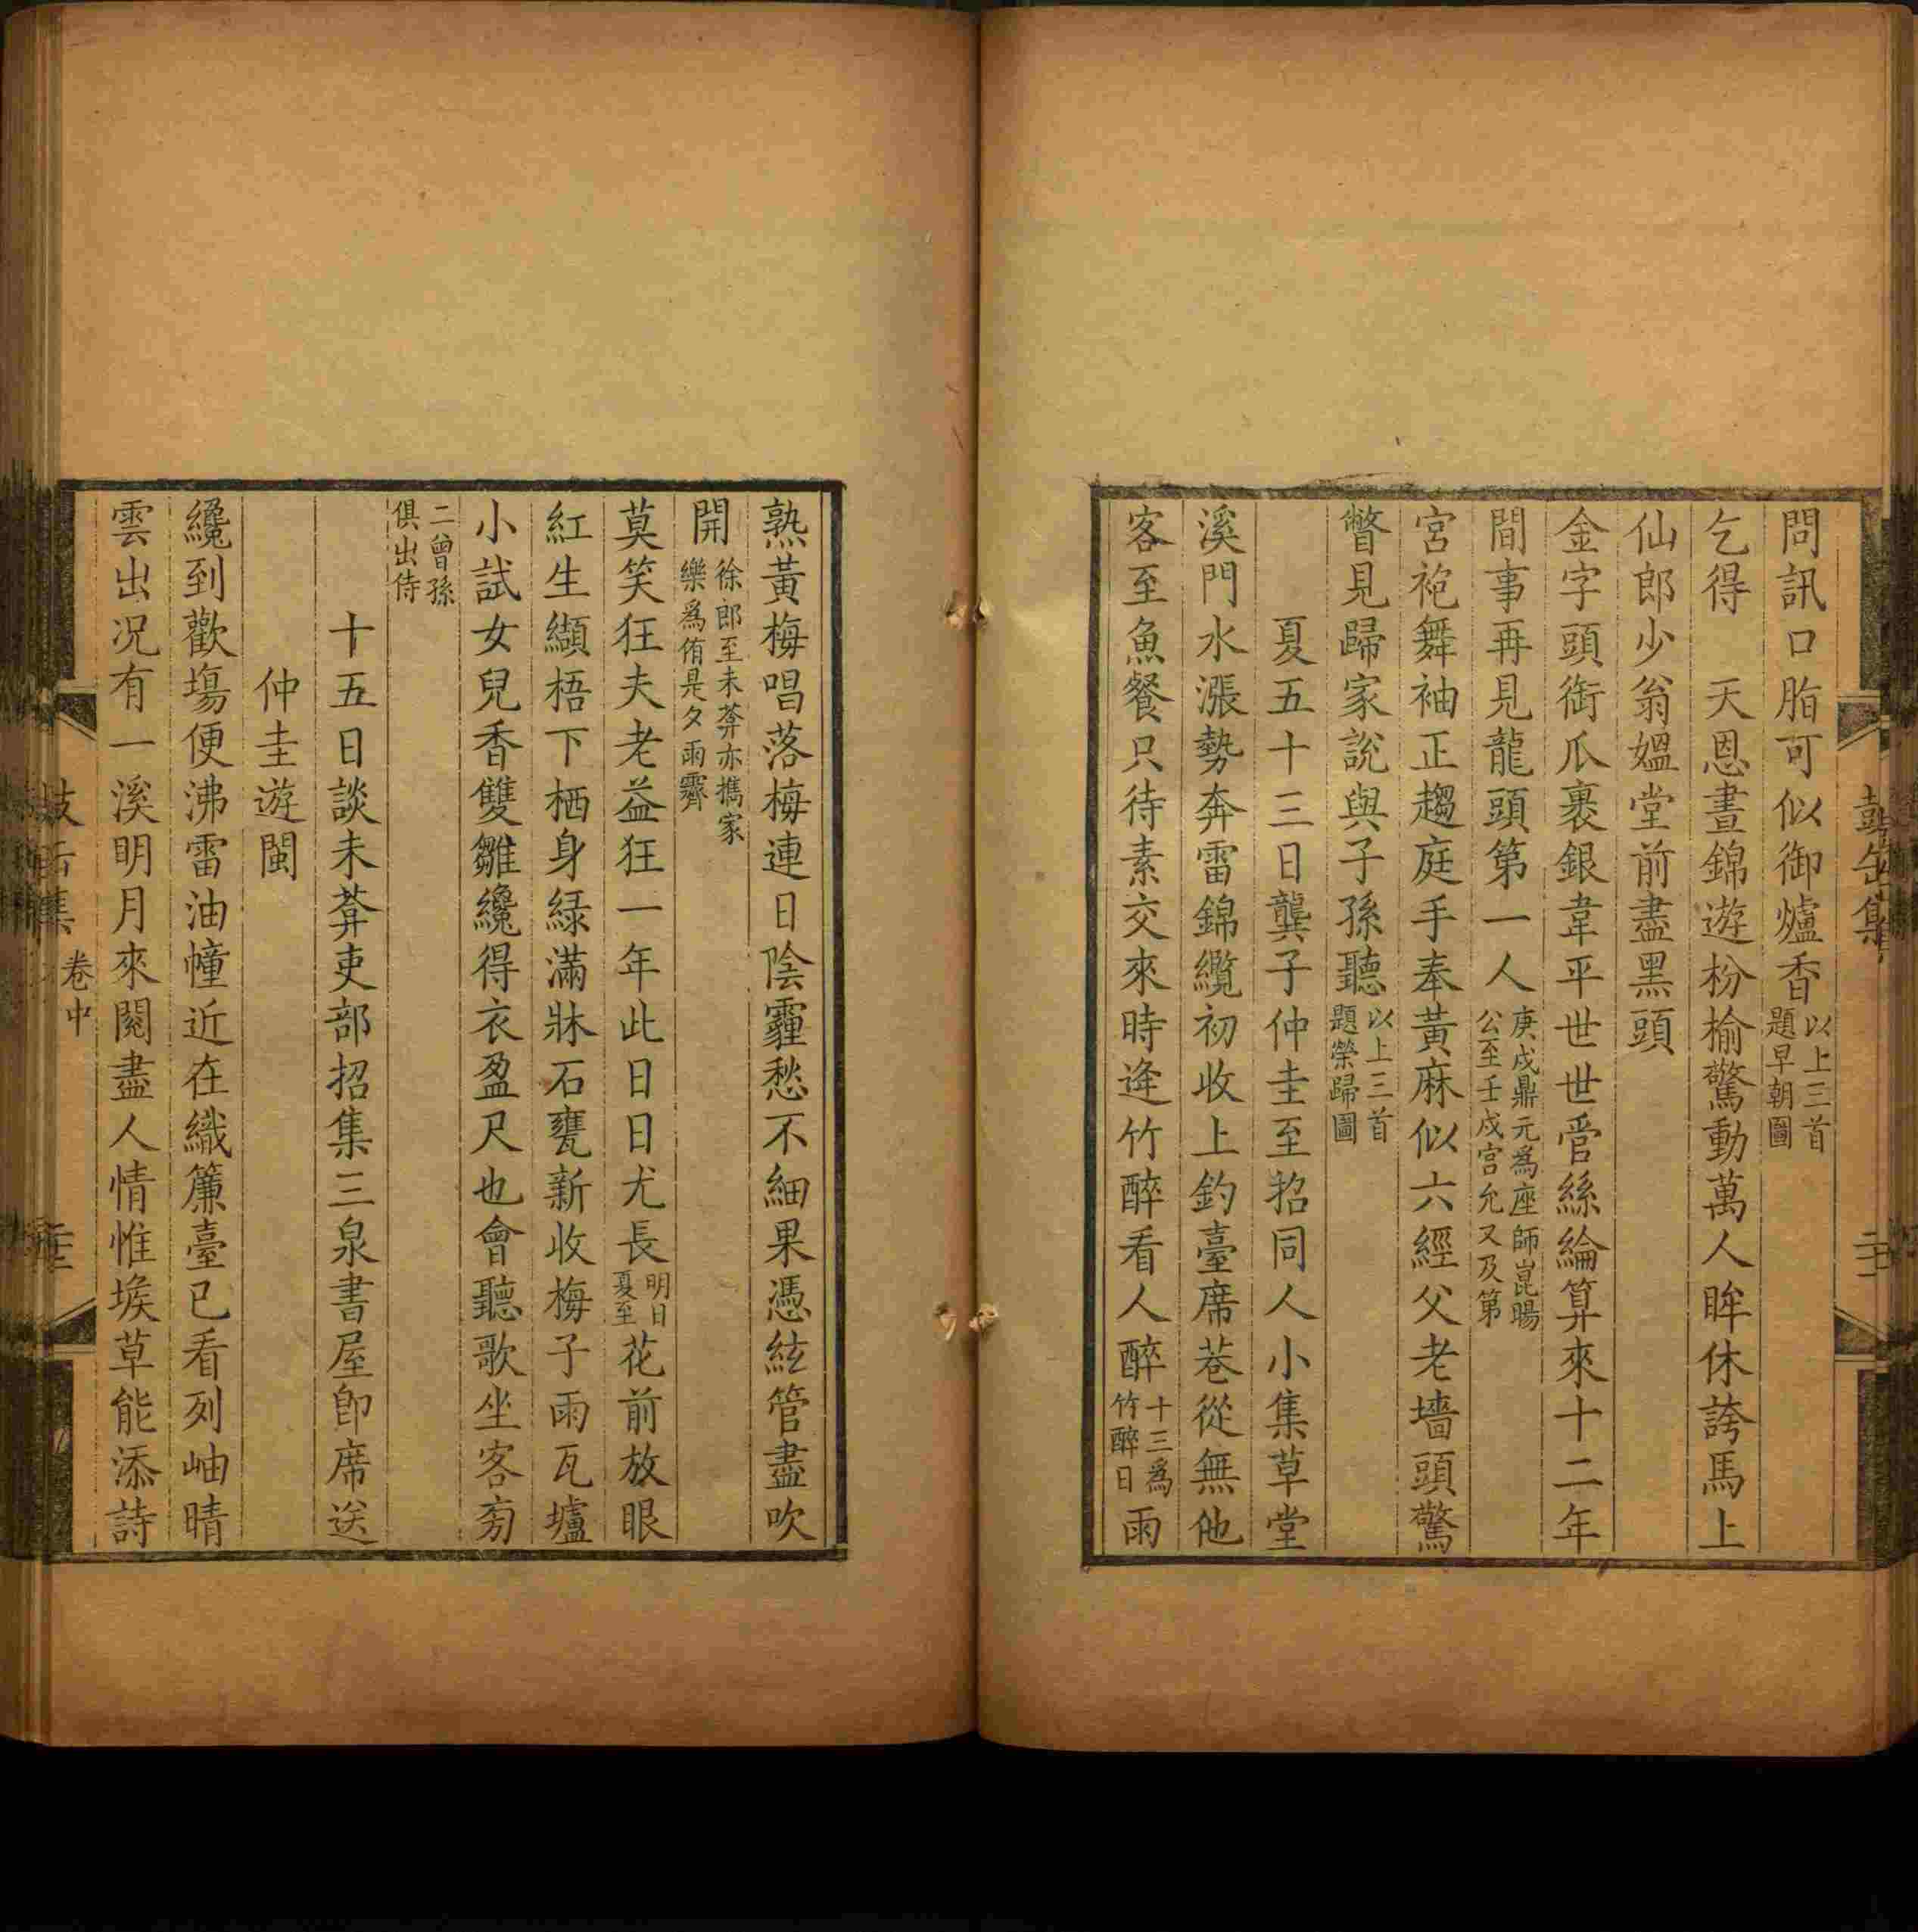 問訊口脂可似御爐香以上三首題早朝圖
乞得　天恩晝錦遊枌榆驚動萬人眸休誇馬上
仙郎少翁媼堂前盡黑頭
金字頭銜爪裹銀韋平世世管絲綸算來十二年
間事再見龍頭第一人庚戌鼎元為座師崑暘公至壬戌宮允又及第
宮袍舞袖正趨庭手奉黃麻似六經父老墻頭驚
瞥見歸家說與子孫聽以上三首題榮歸圖
夏五十三日龔子仲圭至招同人小集草堂
溪門水漲勢奔雷錦纜初收上釣臺席巷從無他
客至魚餐只待素交來時逢竹醉看人醉十三為竹醉日雨
熟黃梅唱落梅連日陰霾愁不細果憑絃管盡吹
開徐郎至未葊亦攜家樂爲侑是夕雨霽
莫笑狂夫老益狂一年此日日尤長明日夏至花前放眼
紅生纈梧下栖身綠滿牀石甕新收梅子雨瓦壚
小試女兒香雙雛纔得衣盈尺也會聽歌坐客旁
二曾孫俱出侍
十五日談未葊吏部招集三泉書屋卽席送
仲圭遊閩
纔到歡塲便沸雷油幢近在織簾臺已看列岫晴
雲出况有一溪明月來閱盡人情惟堠草能添詩
卷中